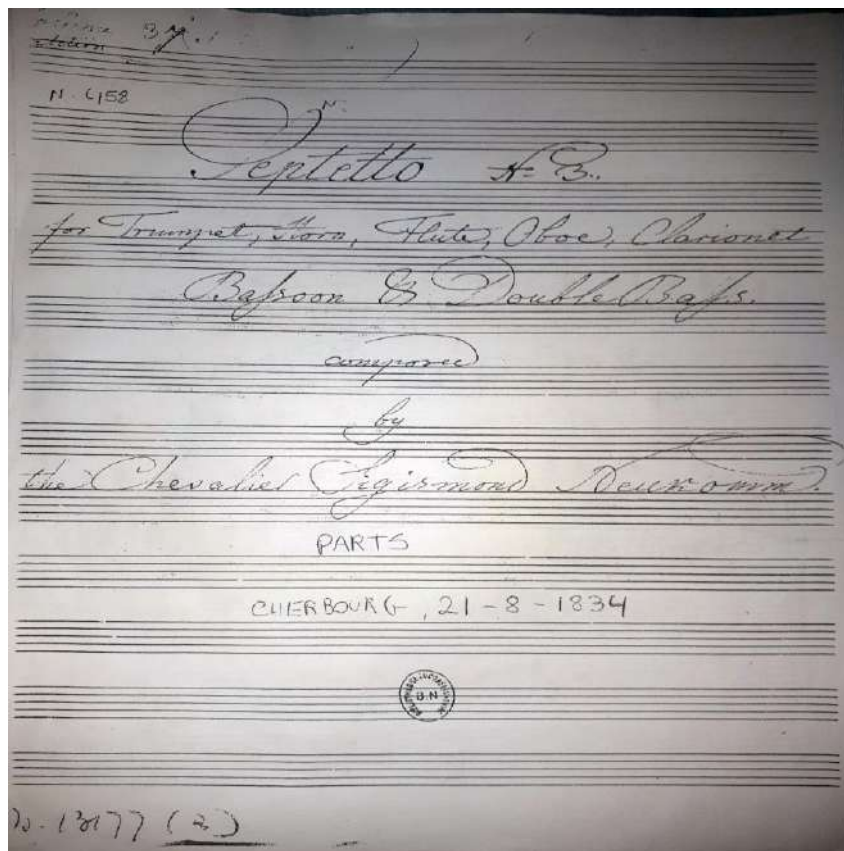 N. 6158
Septetto No. 3.
for Trumpet, Horn, Flute, Oboe, Clarionet
Bafsoon & Double Bafs.
composed
by
the Chevalier Sigismond Neukomm.
PARTS
CHERBOURG, 21-8-1834
B.N
13177 (2)